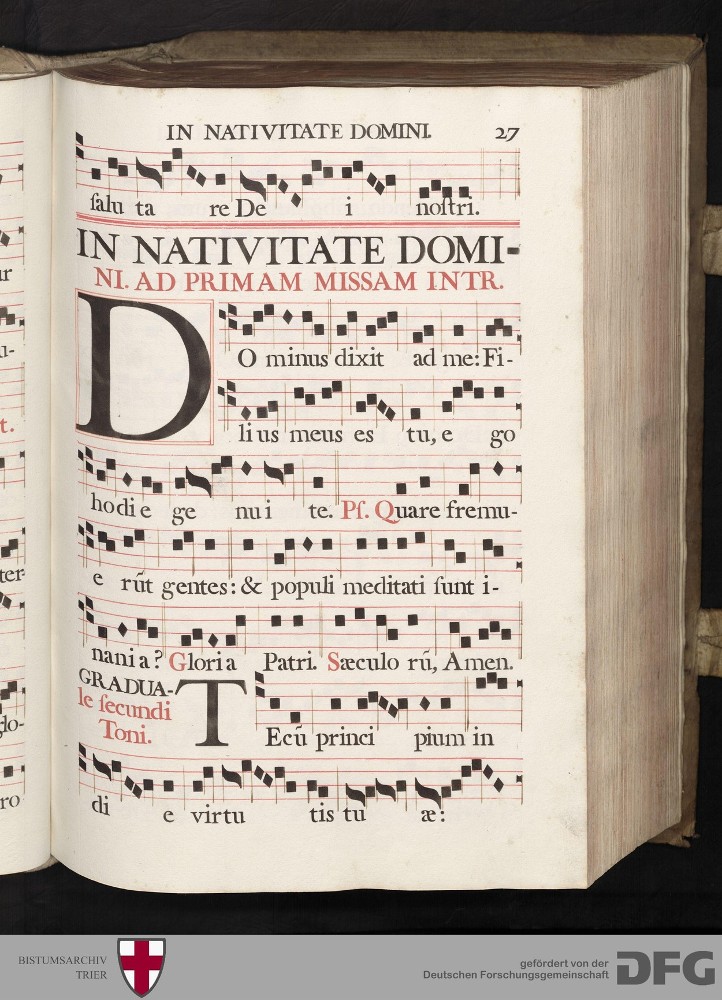 IN NATIVITATE DOMINI. 27
ſalu ta re De i noſtri.
IN NATIVITATE DOMI-
NI. AD PRIMAM MISSAM INTR.
DO minus dixit ad me: Fi-
li us meus es tu, e go
ho di e ge nu i te. Pſ. Quare fremu-
e rūt gentes: & populi meditati ſunt i-
nani a? Gloria Patri. Sæculo rū, Amen.
GRADUA-
le ſecundi
Toni.
TEcū princi pium in
di e virtu tis tu æ:
ur
u-
t.
ter-
glo-
ro
BISTUMSARCHIV
TRIER
gefördert von der
Deutschen Forschungsgemeinschaft
DFG